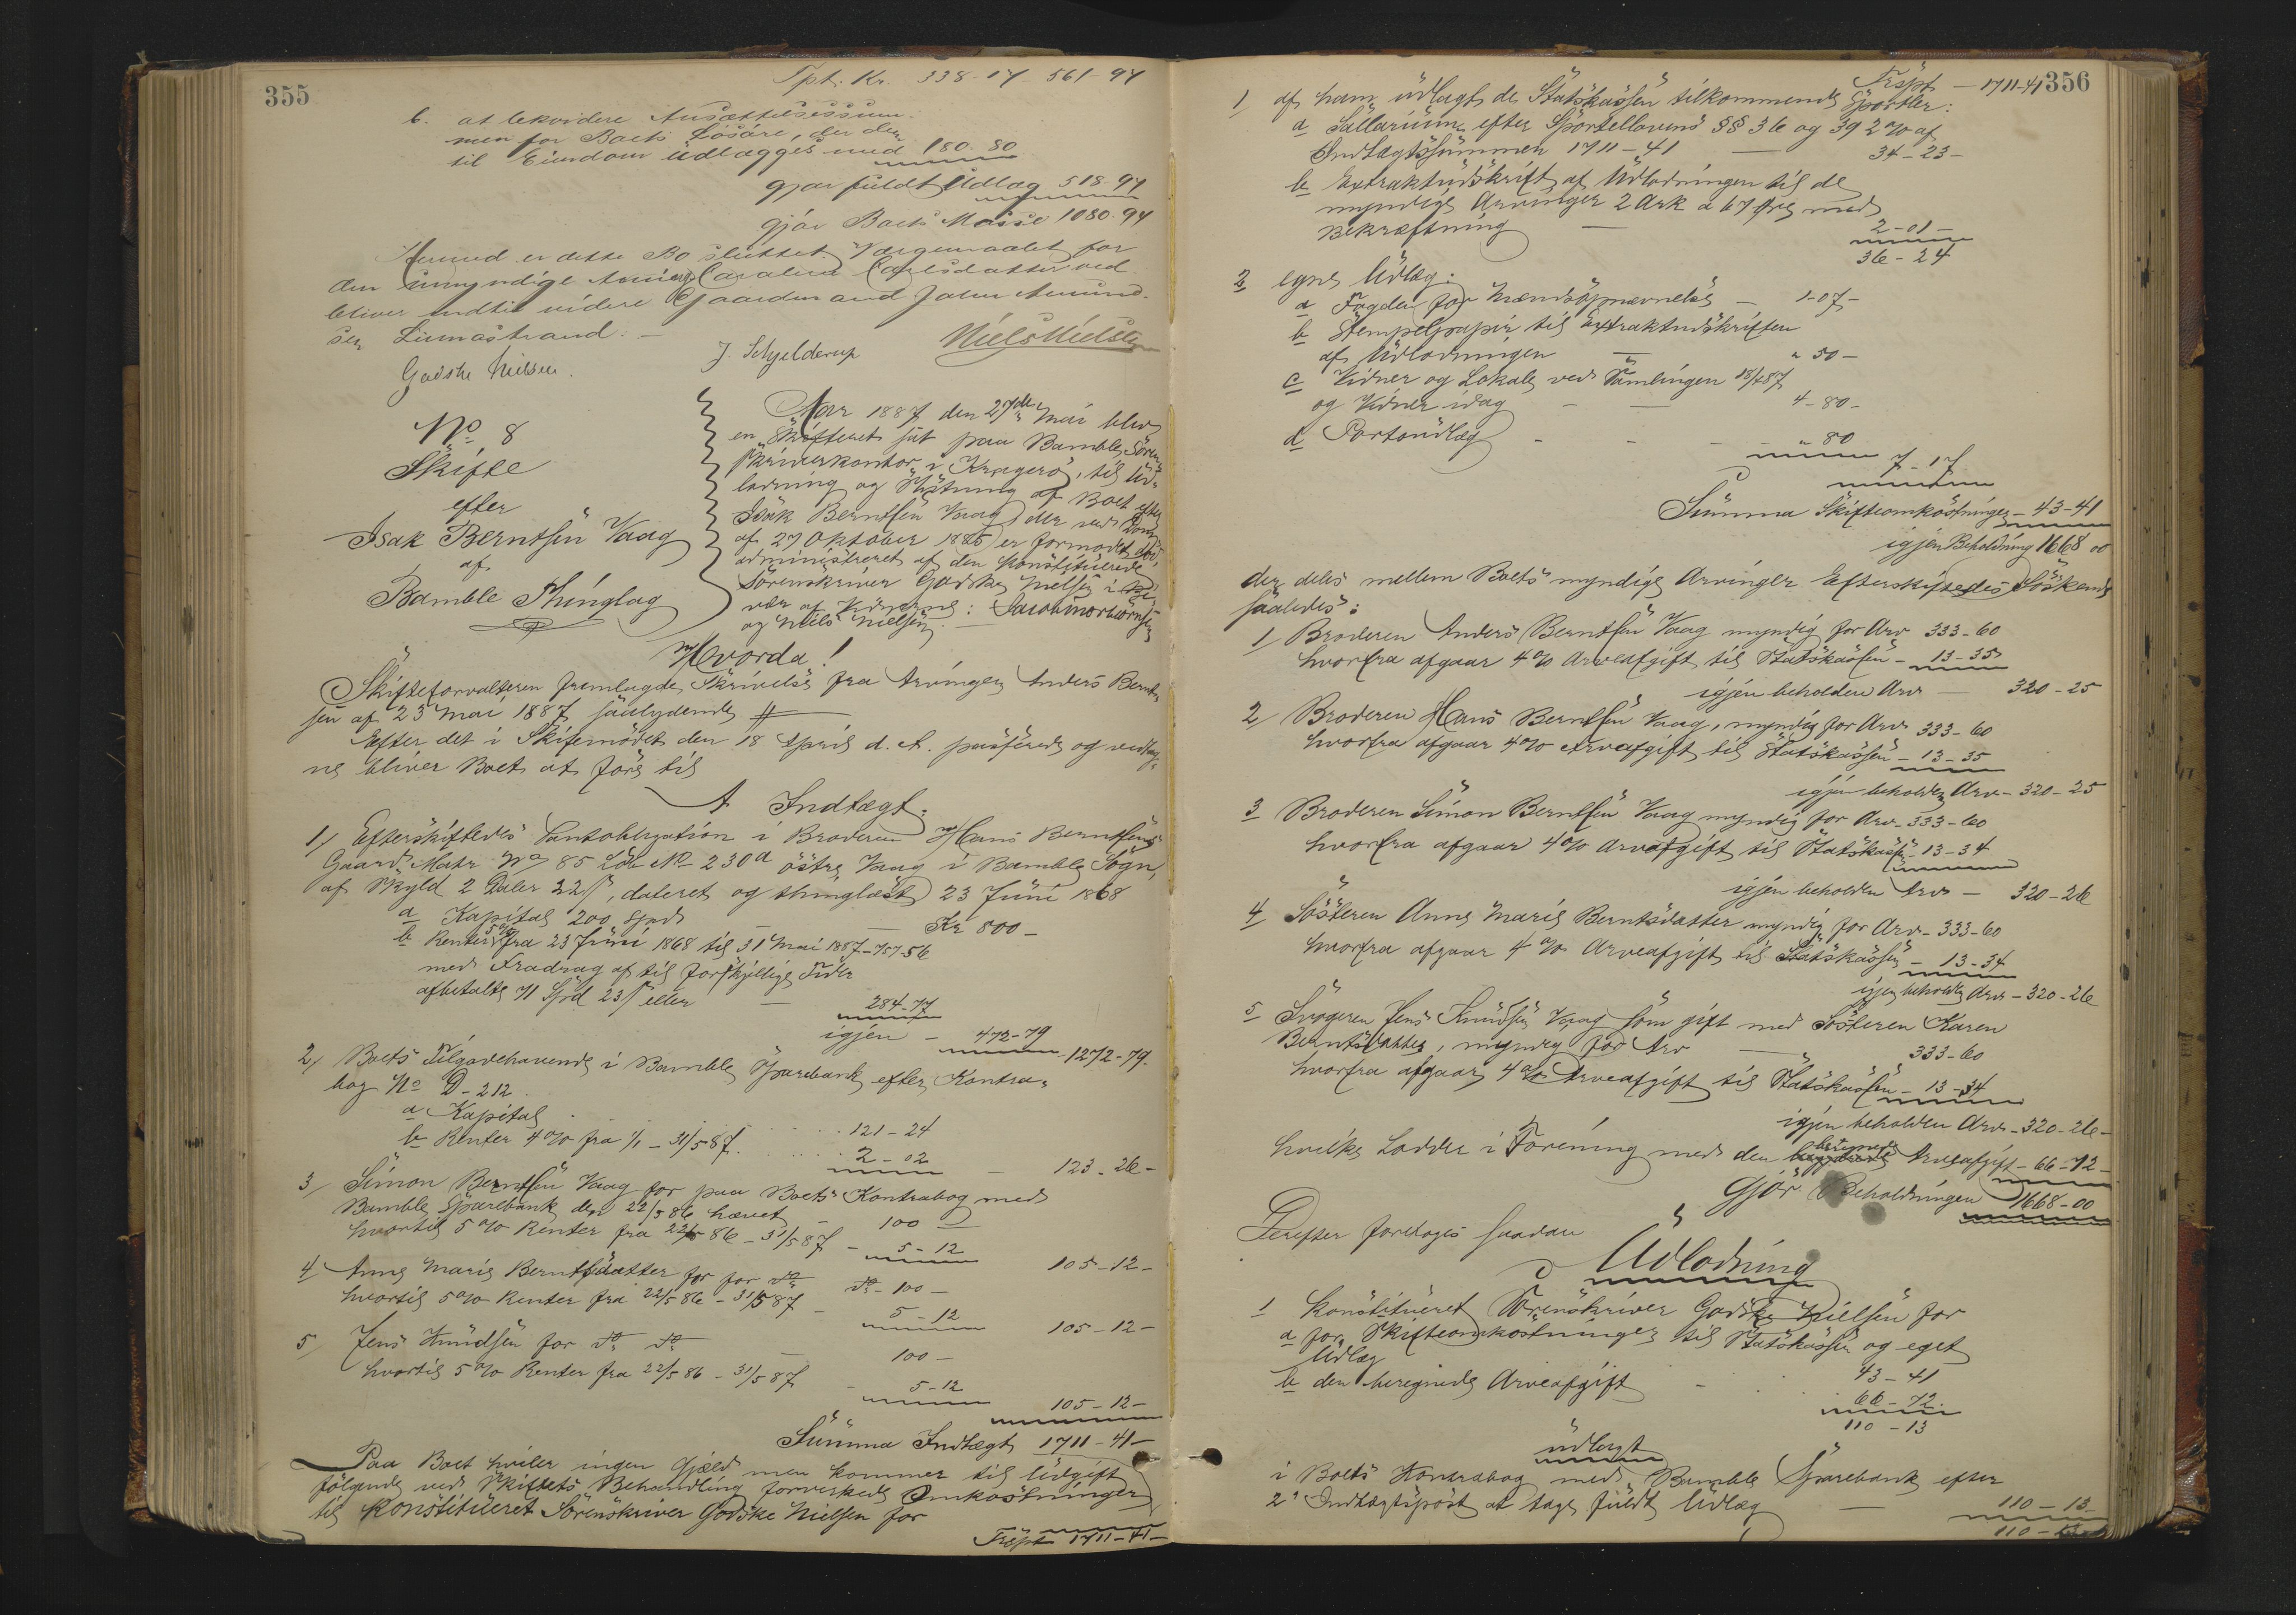 355
Tpt. Kr. 338-17 561-97
b. at bekvidere Ansættelsessum-
men for Boets Løsøre, der den
til Eiendom udlægges med 180.80
gjør fuldt Udlæg 518-97
gjør Boets Masse 1080.94
Hermed er dette Bo sluttet. Værgemaalet for
den umyndige Arving Caroline Carlsdatter ved
bliver indtil videre Gaardmand John Amund-
sen Linnastrand.-
Godske Nielsen. J. Schjelderup Niels Nielsen
No 8
Skifte
efter
Isak Berntsen Vaag
af
Bamble Thinglag
Aar 1887 den 27de Mai blev
en Skifteret sat paa Bamble Soren-
skriverkontor i Kragerø, til Ud-
lodning og Slutning af Boet efter
Isak Berntsen Vaag der ved Dom
af 27 Oktober 1885 er formodet død,
administreret af den konstituerede
Sorenskriver Godske Nielsen i
vær af Vidnerne: Jacob Mortensen
og Niels Nielsen.
Hvorda!
Skifteforvalteren fremlagde Skrivelse fra Arvingen Anders Bernt-
sen af 23 Mai 1887 saalydende #
Efter det i Skiftemødet den 18 April d. A. passerede og vedtag-
ne bliver Boet at føre til
A Indtægt.
1/ Efterskiftedes Pantobligation i Broderen Hans Berntsens
Gaard Matr No 85 Løb No 230a østre Vaag i Bamble Sogn,
af Skyld 2 Daler 22 ß, dateret og thinglæst 23 Juni 1868
a Kapital 200 Spd — Kr 800-
b Renter 5% fra 23 Juni 1868 til 31 Mai 1887-757-56
med Fradrag af til forskjellige Tider
afbetalte 71 Spd 23 ß eller — 284-77
igjen - 472-79 1272-79.
2/ Boets Tilgodehavende i Bamble Sparebank efter Kontra-
bog No D-212.
a Kapital 121-24
b Renter 4% fra 1/1 - 31/5 87. 2-02 123-26-
3/ Simon Berntsen Vaag for paa Boets Kontrabog med
Bamble Sparebank den 22/5 86 hævet - 100-
hvortil 5% Renter fra 22/5 86 - 31/5 87 - 5-12 105-12-
4/ Anne Marie Berntsdatter for for do do - 100-
hvortil 5% Renter fra 22/5 86 - 31/5 87 - 5-12 105-12-
5/ Jens Knudsen for do do — 100-
hvortil 5% Renter fra 22/5 86 - 31/5 87 - 5-12 105-12-
Summa Indtægt 1711-41-
Paa Boet hviler ingen Gjæld men kommer til Udgift
følgende ved Skiftets Behandling forvirkede Omkostninger
til Konstitueret Sorenskriver Godske Nielsen for
Trspt 1711-41-
356
Trspt - 1711-41
1/ af ham udlagt de Statskassen tilkommende Sportler:
a Sallarium efter Sportellovens §§ 36 og 39 2% af
Indtægtssummen 1711-41 — 34-23-
b Extraktudskrift af Udlodningen til de
myndige Arvinger 2 Ark a 67 Øre med
Bekræftning — 2-01-
36-24
2 egne Udlæg:
a Fogden for Mændsopnævnelse - 1-07-
b Stempelpapir til Extraktudskriften
af Udlodningen — " 50-
c Vidner og Lokale ved Samlingen 18/4 87
og Vidner idag - 4-80-
d Portoudlæg - " 80
7-17
Summa Skifteomkostninger - 43-41
igjen Beholdning 1668 00
der deles mellem Boets myndige Arvinger Efterskiftedes Søskende
saaledes:
1/ Broderen Anders Berntsen Vaag myndig for Arv 333-60
hvorfra afgaar 4% Arveafgift til Statskassen - 13-35
igjen beholden Arv — 320-25
2/ Broderen Hans Berntsen Vaag, myndig for Arv 333-60
hvorfra afgaar 4% Arveafgift til Statskassen - 13-35
igjen beholden Arv - 320-25
3 Broderen Simon Berntsen Vaag myndig for Arv - 333-60
hvorfra afgaar 4% Arveafgift til Statskassen - 13-34
igjen beholden Arv - 320-26
4 Søsteren Anne Marie Berntsdatter myndig for Arv - 333-60
hvorfra afgaar 4% Arveafgift til Statskassen - 13-34
igjen beholden Arv - 320-26
5 Svogeren Jens Knudsen Vaag som gift med Søsteren Karen
Berntsdatter, myndig for Arv — 333-60
hvorfra afgaar 4% Arveafgift til Statskassen - 13-34
igjen beholden Arv - 320-26-
hvilke Lodder i Forening med den beregnede Arveafgift - 66-72-
Gjør Beholdningen 1668-00
Derefter foretoges saadan
Udlodning
1 Konstitueret Sorenskriver Godske Nielsen for
a for Skifteomkostninger til Statskassen og eget
Udlæg 43-41
b den beregnede Arveafgift 66-72.
110-13
udlagt
i Boets Kontrabog med Bamble Sparebank efter
2. Indtægtspost at tage fuldt Udlæg — 110-13
110-13